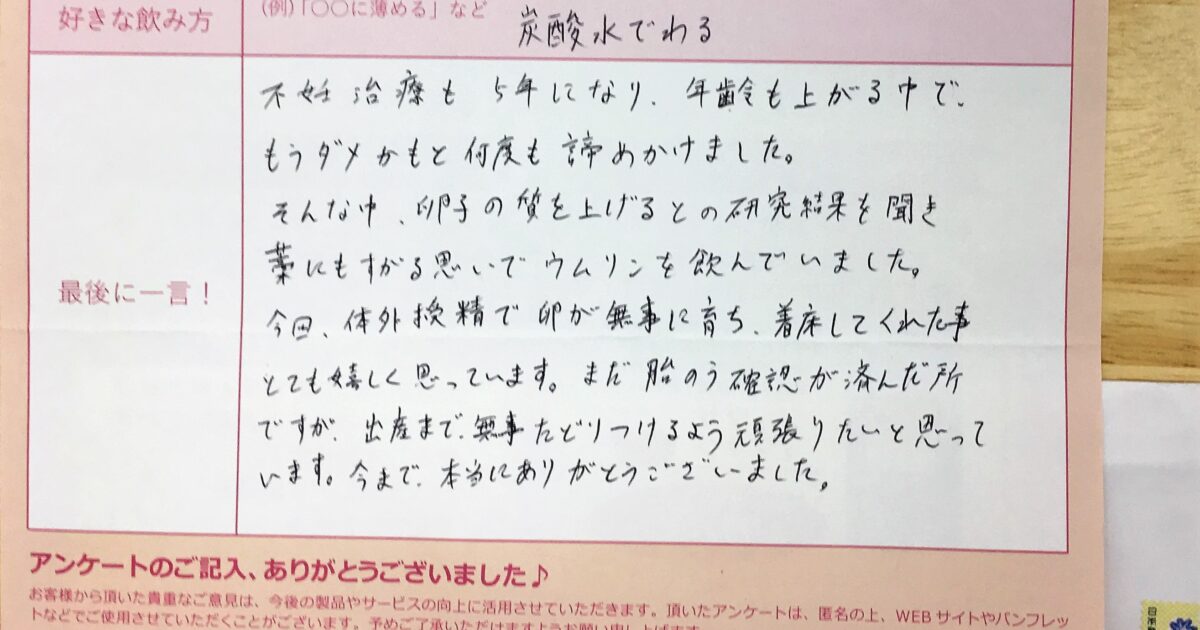 好きな飲み方
(例)「〇〇に薄める」など
炭酸水でわる
最後に一言！
不妊治療も5年になり、年齢も上がる中で、
もうダメかもと何度も諦めかけました。
そんな中、卵子の質を上げるとの研究結果を聞き
藁にもすがる思いでウムリンを飲んでいました。
今回、体外授精で卵が無事に育ち、着床してくれた事
とても嬉しく思っています。まだ胎のう確認が済んだ所
ですが、出産まで、無事たどりつけるよう頑張りたいと思って
います。今まで、本当にありがとうございました。
アンケートのご記入、ありがとうございました♪
お客様から頂いた貴重なご意見は、今後の製品やサービスの向上に活用させていただきます。頂いたアンケートは、匿名の上、WEBサイトやパンフレッ
トなどでご使用させていただくことがございます。予めご了承いただけますようお願い申し上げます。